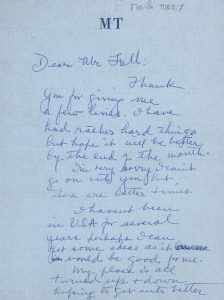 Mark Tobey
MT
Dear Mr Fall:
Thank
you for giving me
a few lines. I have
had rather hard things
but hope it will be better
by the end of the month.
I'm very sorry I can't
go on into you but
there are better
I havent been
in USA for several
years perhaps I can
get some ideas as it
would be good for me.
My place is all
turned up + down
hoping to get into better